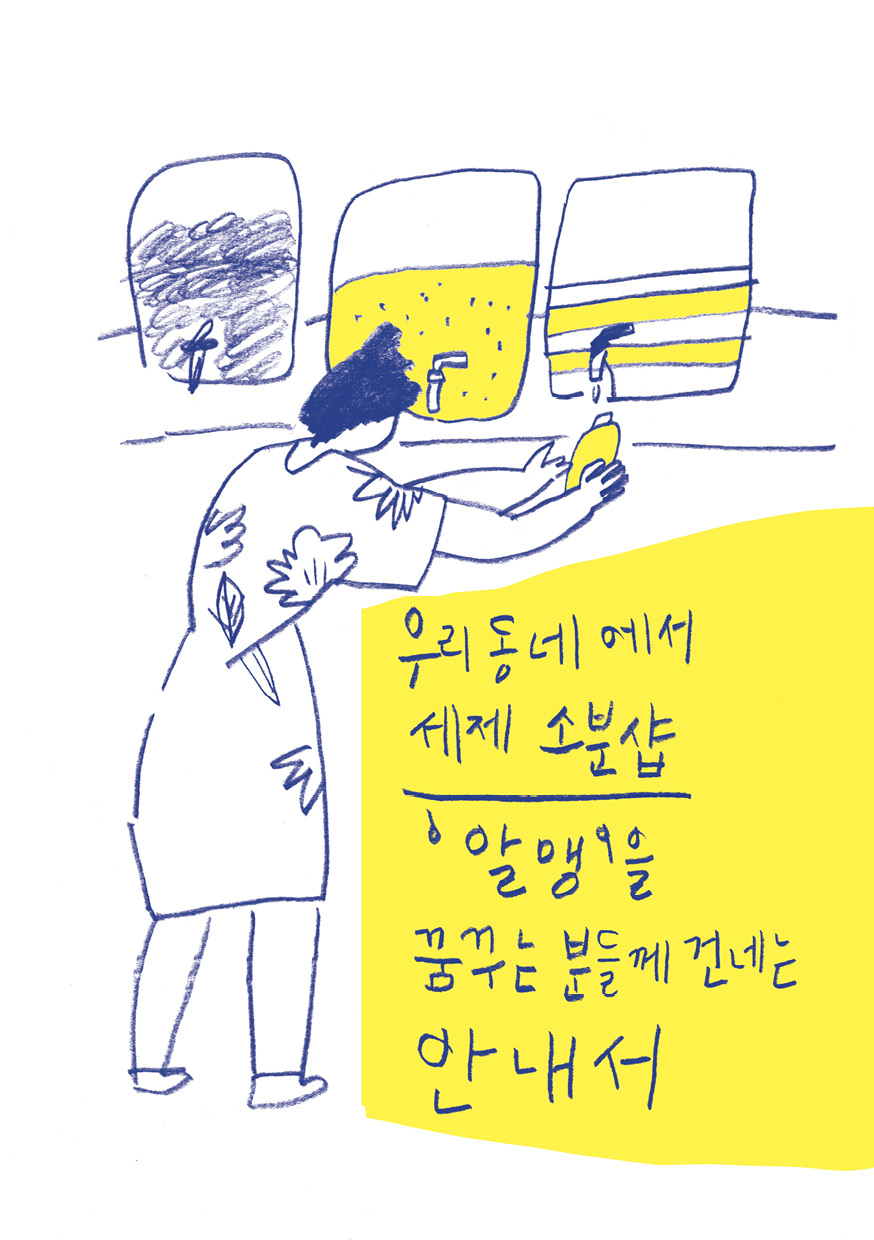 우리동네에서
세제 소분샵
'알맹'을
꿈꾸는 분들께 건네는
안내서